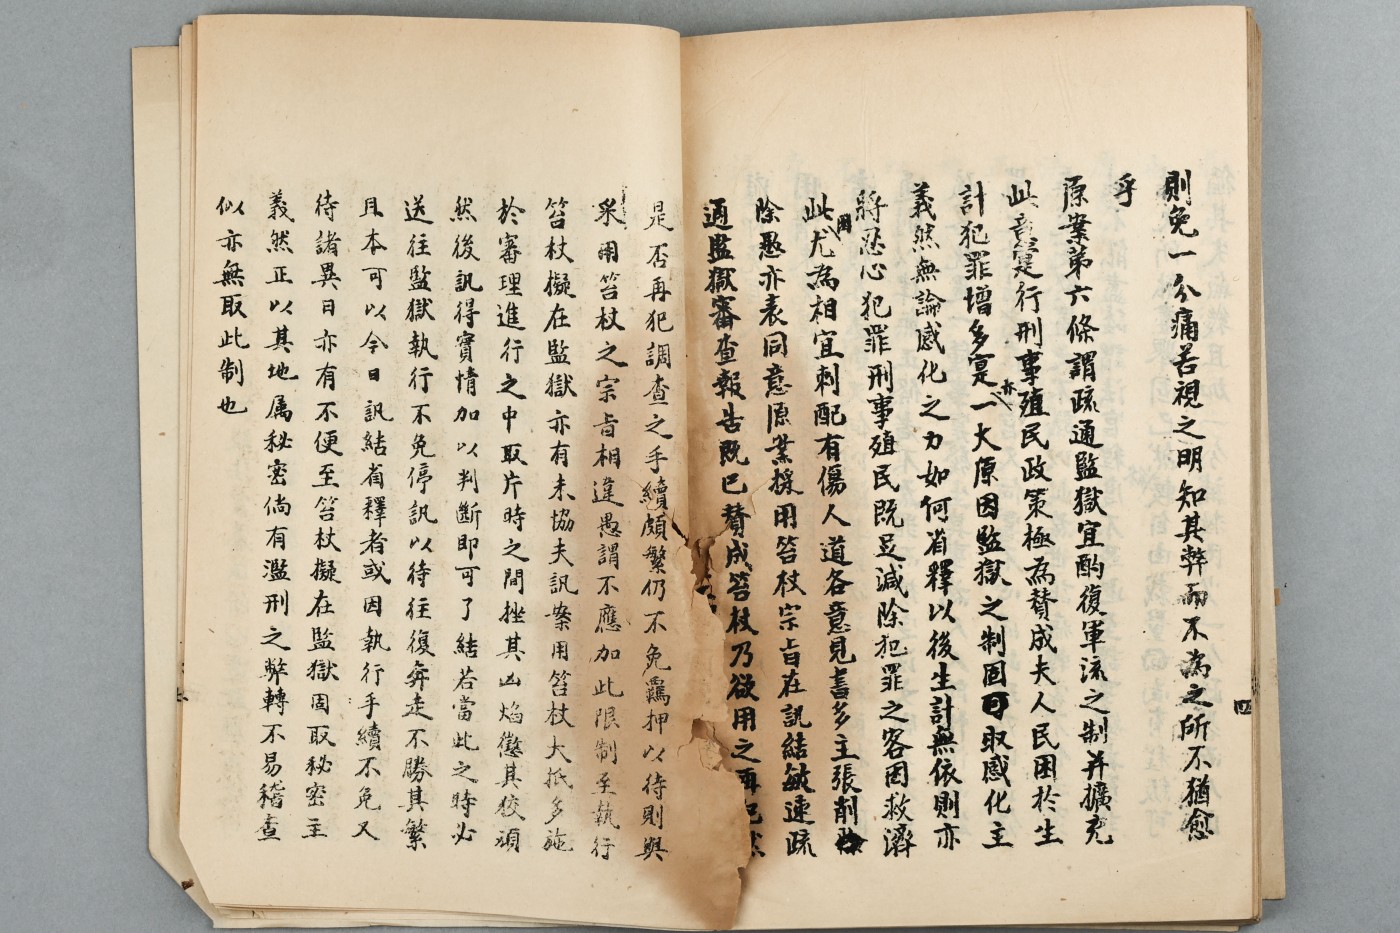 則免一分痛苦視之明知其弊而不為之所不猶愈
乎
原案第六條謂疏通監獄宜酌復軍流之制并擴充
此意實行刑事殖民政策極為贊成夫人民困於生
計犯罪增多寔亦一大原因監獄之制固可取感化主
義然無論感化之力如何省釋以後生計無依則亦
將忍心犯罪刑事殖民既足減除犯罪之客因救濟
此尤為相宜刺配有傷人道各意見書多主張削
除愚亦表同意原案採用笞杖宗旨在訊結敏速疏
通監獄審查報告既已贊成笞杖乃欲用之再犯然
是否再犯調查之手續頗繁仍不免羈押以待則與
采用笞杖之宗旨相違愚謂不應加此限制至執行
笞杖擬在監獄亦有未協夫訊案用笞杖大抵多施
於審理進行之中取片時之間挫其凶焰懲其狡頑
然後訊得實情加以判斷即可了結若當此之時必
送往監獄執行不免停訊以待往復奔走不勝其繁
且本可以今日訊結省釋者或因執行手續不免又
待諸異日亦有不便至笞杖擬在監獄固取秘密主
義然正以其地属秘密倘有濫刑之弊轉不易稽查
似亦無取此制也
四